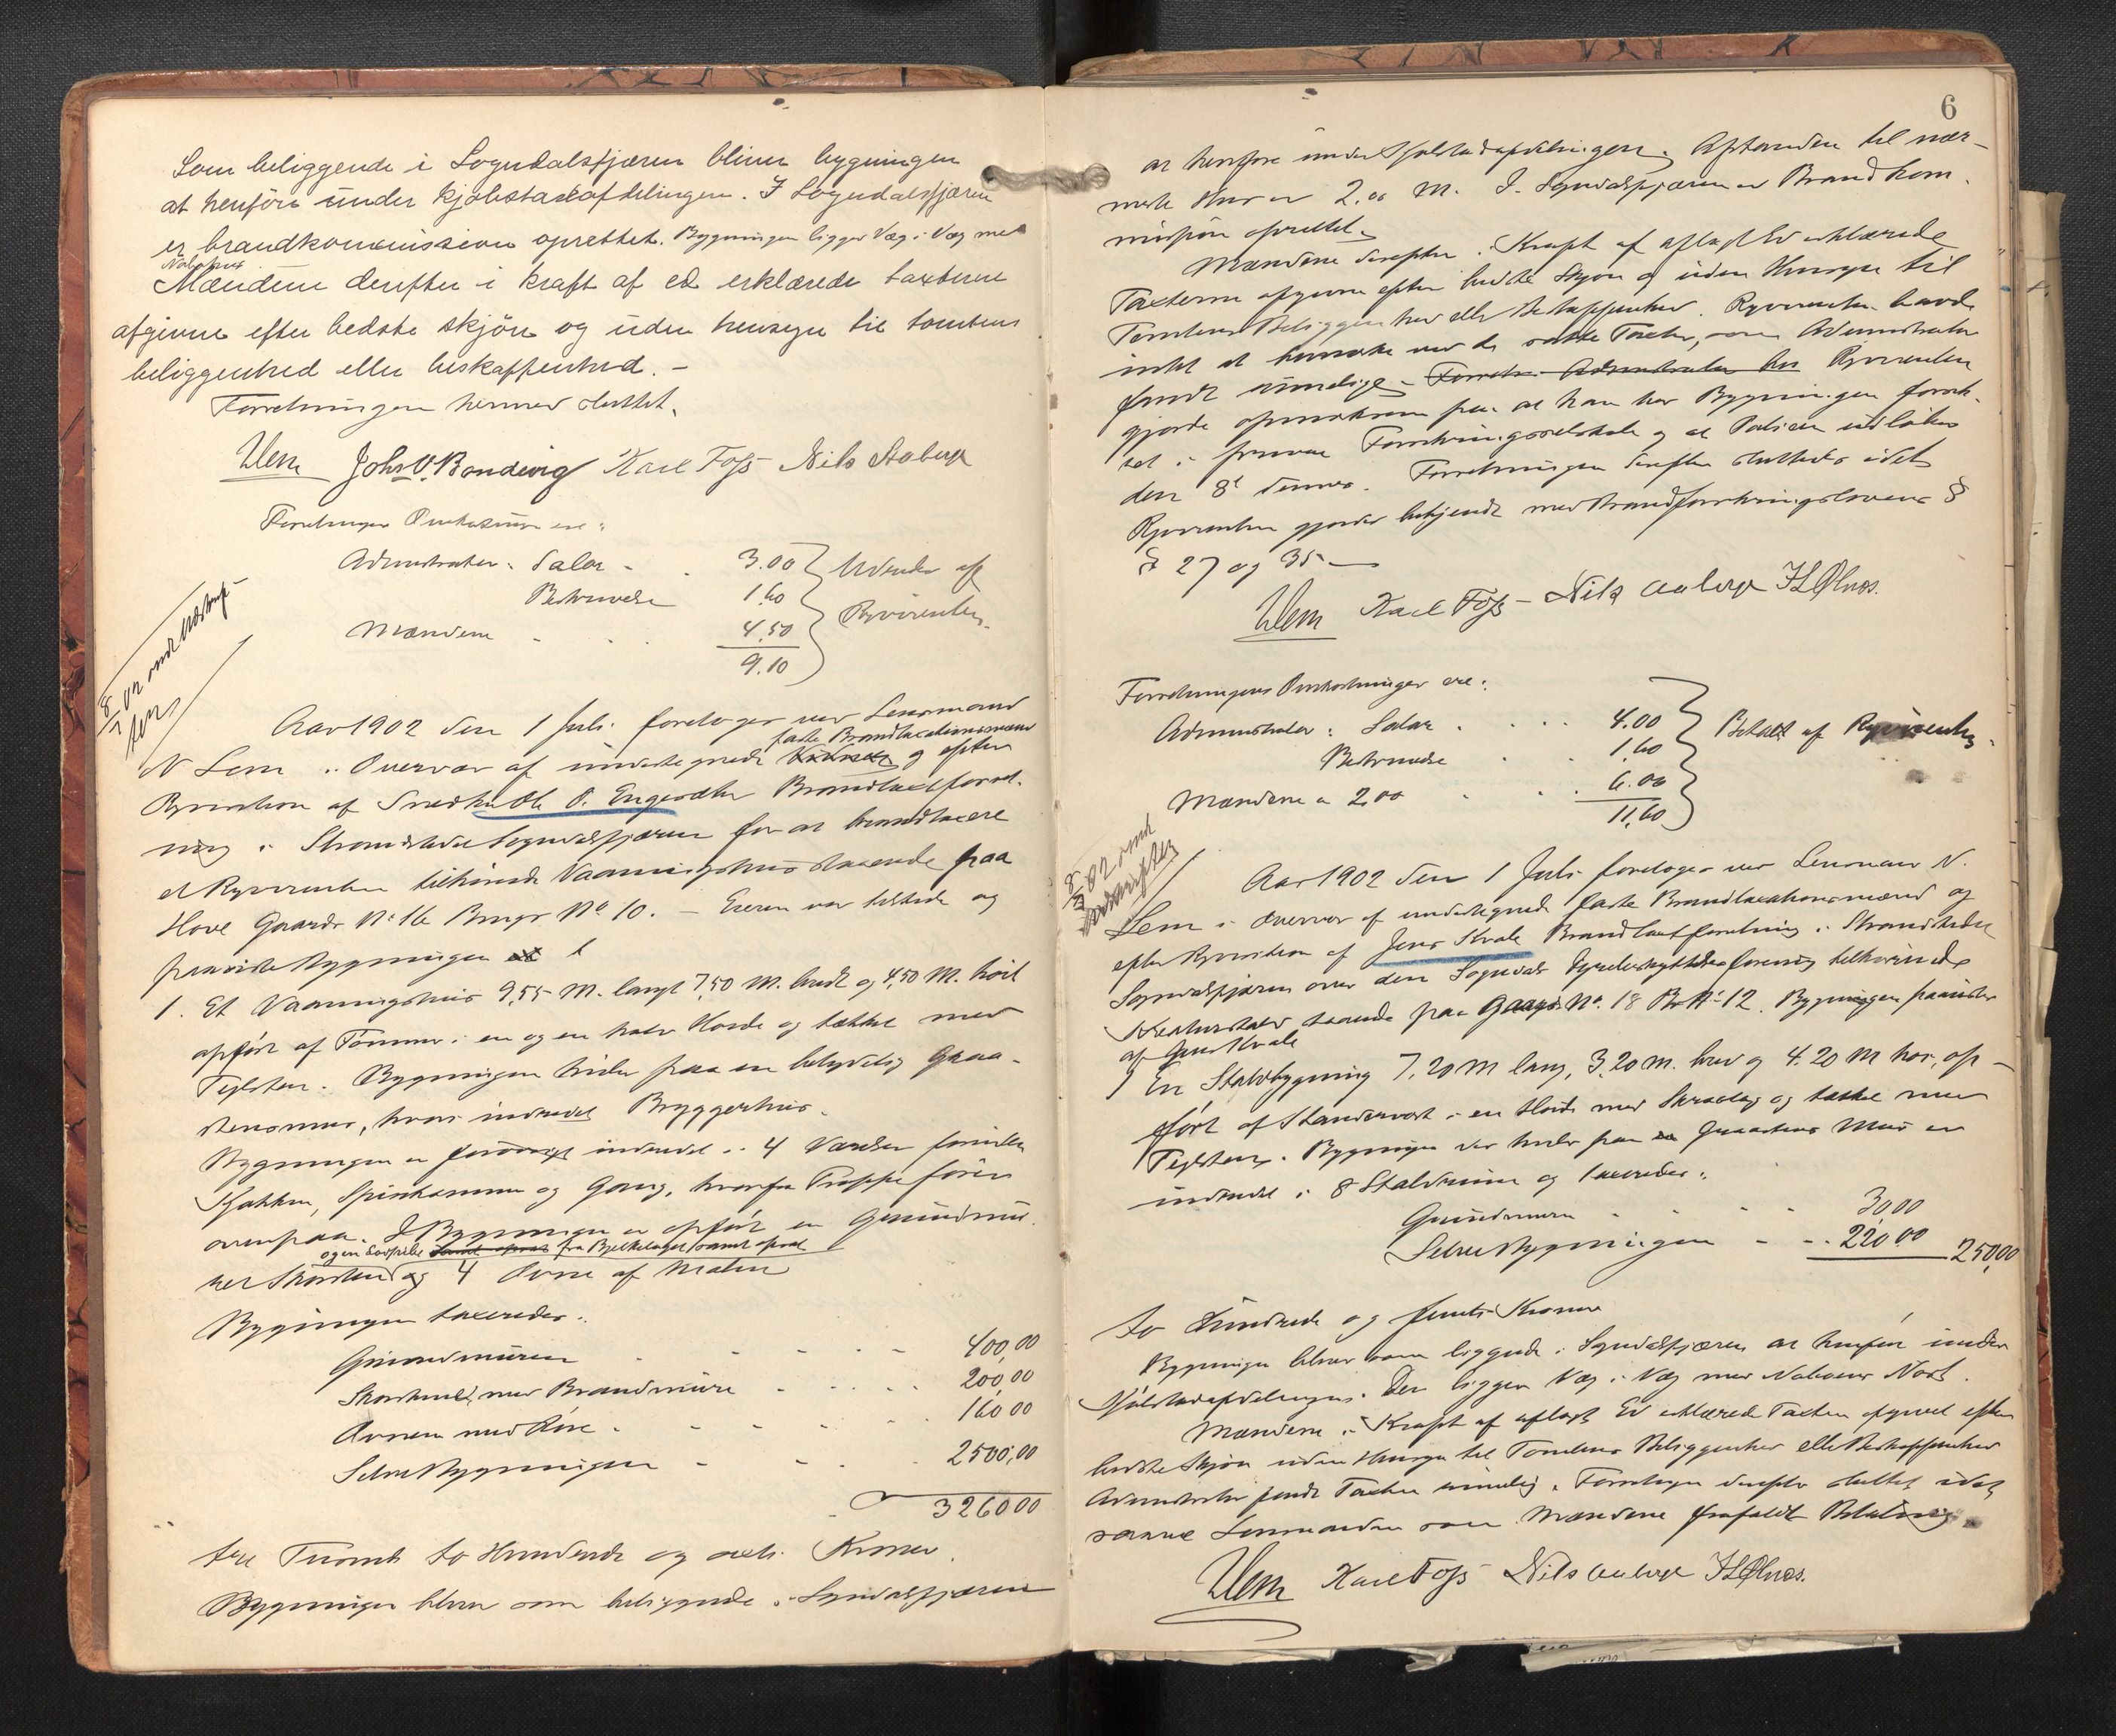 Som beliggende i Sogndalsfjæren bliver bygningen
at henföre under kjøbstadsafdelingen. I Sogndalsfjæren
er brandkommission oprettet. Bygningen ligger Væg i Væg med
Nabohus
Mændene derefter i kraft af ed erklærede taxterne
afgivne efter bedste skjön og uden hensyn til tomtens
beliggenhed eller beskaffenhed. –
Forretningen hermed sluttet.
NLem John O. Bondevig Karl Foss Nils Aaberge
Forretningens Omkostninger ere:
Administrator: Salær - 3.00 Udrede af
Beskrivelse 1,60 Rekvirenten.
Mændene - 4,50
9.10
8/7 02 med Udskrift
Aar 1902 den 1 Juli foretoges ved Lensmand
faste Brandtaxationsmænd
N Lem i Overvær af undertegnede og efter
Rekvisition af Snedker Ole O. Engesæter Brandtaxtforret-
ning i Strandstedet Sogndalsfjæren for at brandtaxere
et Rekvirenten tilhørende Vaaningshus staaende paa
Hove Gaards No 16 Brugs No 10. – Eieren var tilstede og
paaviste Bygningen
1. Et Vaaningshus 9,55 M. langt 7,50 M. bredt og 4,50 M. höit
opført af Tømmer i en og en halv Etage og tækket med
Teglsten. Bygningen hviler paa en betydelig Graa-
stensmur, hvori indredet Bryggerhus.
Bygningen er forøvrigt indredet i 4 Værelser foruden
Kjøkken, Spiskammer og Gang, hvorfra Trappe fører
ovenpaa. I Bygningen er opført en
og en fra Bjelkelaget samt
ket Skorsten og 4 Ovne af Malm
Bygningen taxeredes:
Grundmuren - - - - 400,00
Skorsten med Brandmure - - - - 200,00
Ovnene med Rör - - - - 160 00
Selve Bygningen - - - 2500,00
3260 00
tre Tusend to Hundrede og sexti Kroner.
Bygningen bliver som beliggende i Sogndalsfjæren
6
at henføre under Kjøbstadafdelingen. Afstanden til nær-
meste Hus er 2.00 M. I Sogndalsfjæren er Brandkom-
mission oprettet.
Mændene derefter i Kraft af aflagt Ed erklærede
Taxterne afgivne efter bedste Skjøn og uden Hensyn til
Tomtens Beliggenhed eller Beskaffenhed. Rekvirenten havde
intet at bemærke ved de satte Taxter, som Administrator
fandt rimelige. Rekvirenten
gjorde opmerksom paa at han har Bygningen forsik-
ret i Forsikringsselskab og at Polisen udløber
den 8de dennes. Forretningen derefter sluttedes idet
Rekvirenten gjordes bekjendt med Brandforsikringslovens §
§ 27 og 35 –
NLem Karl Foss – Nils Aaberge
Forretningens Omkostninger ere:
Administrator: Salær . . . . 4.00 Betalt af Rekvirenten.
Beskrivelse . . 1,60
Mændene a 2,00 . . . 6.00
11,60
8/7 02 med
Udskrift
Aar 1902 den 1 Juli foretoges ved Lensmand N.
Lem i Overvær af undertegnede faste Brandtaxationsmænd og
efter Rekvisition af Jens Kvale Brandtaxtforretning i Strandstedet
Sogndalsfjæren over den Sogndals Dyrebeskyttelsesforening tilhørende
staaende paa Gaards No. 18 Br No 12. Bygningen paavistes
af Jens Kvale
1 En Staldbygning 7,20 M lang, 3,20 M. bred og 4.20 M høi, op-
ført af Standerværk i en Etage med Skraatag og tækket med
Teglsten. Bygningen der hviler paa Graastens Mur er
indredet i 8 Staldrum og taxeredes:
Grundmuren - - - - 30 00
Selve Bygningen - - - 220 00 250,00
to Hundrede og femti Kroner
Bygningen bliver som liggende i Sogndalsfjæren at henføre under
Kjøbstadafdelingen. Den ligger Væg i Væg med Naboens Naust.
Mændene i Kraft af aflagt Ed erklærede Taxten afgivet efter
bedste Skjøn uden Hensyn til Tomtens Beliggenhed eller Beskaffenhed
Administrator fandt Taxten rimelig. Forretningen derefter sluttet idet
Lensmanden som Mændene frafaldt Betaling.
NLem Karl Foss Nils Aaberge